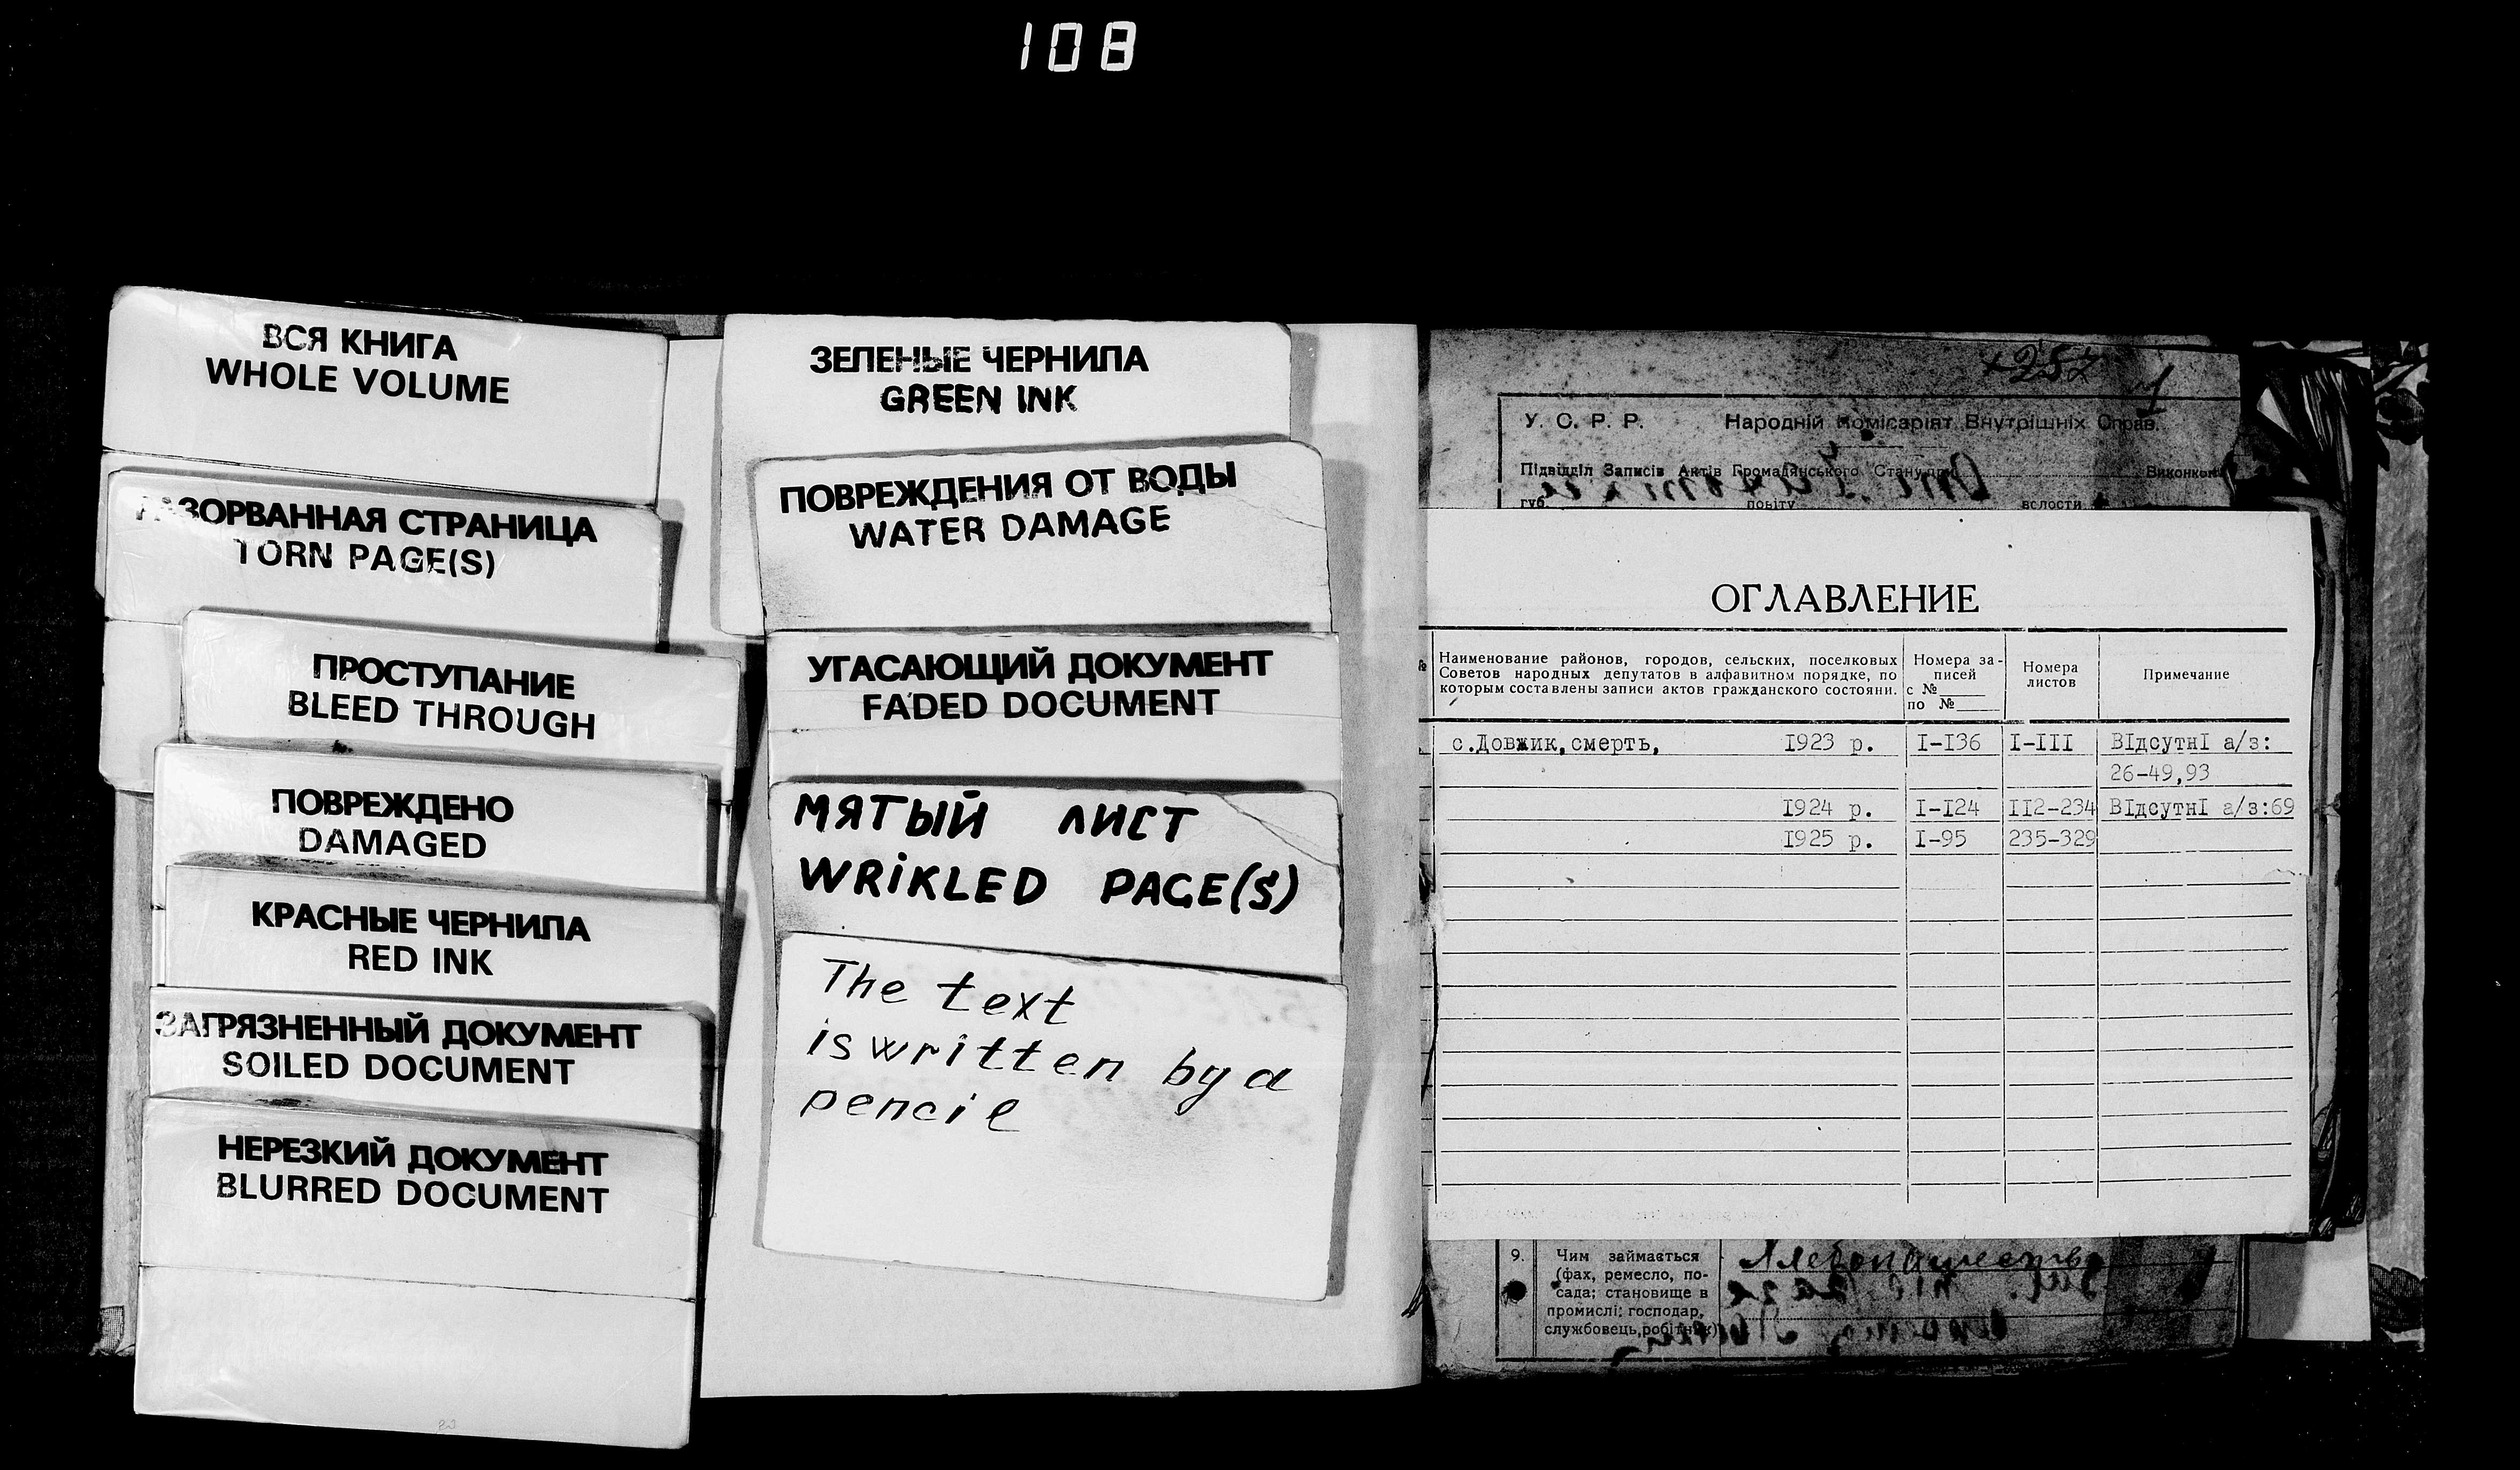 108
ВСЯ КНИГА
WHOLE VOLUME
РАЗОРВАННАЯ СТРАНИЦА
TORN PAGE(S)
ПРОСТУПАНИЕ
BLEED THROUGH
ПОВРЕЖДЕНО
DAMAGED
КРАСНЫЕ ЧЕРНИЛА
RED INK
ЗАГРЯЗНЕННЫЙ ДОКУМЕНТ
SOILED DOCUMENT
НЕРЕЗКИЙ ДОКУМЕНТ
BLURRED DOCUMENT
ЗЕЛЕНЫЕ ЧЕРНИЛА
GREEN INK
ПОВРЕЖДЕНИЯ ОТ ВОДЫ
WATER DAMAGE
УГАСАЮЩИЙ ДОКУМЕНТ
FADED DOCUMENT
МЯТЫЙ ЛИСТ
WRIKLED PAGE(S)
The text
is written by a
pencil
1
У. С. Р. Р. Народній Комісаріят Внутрішніх Справ.
Підвідділ Записів Актів Громадянського Стану при Виконком
губ. повіту волости
ОГЛАВЛЕНИЕ
Наименование районов, городов, сельских, поселковых
Советов народных депутатов в алфавитном порядке, по
которым составлены записи актов гражданского состояни.
Номера за-
писей
с №
по №
Номера
листов
Примечание
с.Довжик,смерть, 1923 р. I-I36 I-III ВIдсутнI а/з:
26-49,93
1924 р. I-I24 II2-234 ВIдсутнI а/з:69
1925 р. I-95 235-329
9. Чим займається
(фах, ремесло, по-
сада; становище в
промислі; господар,
службовець, робітник)
Хлебопашество